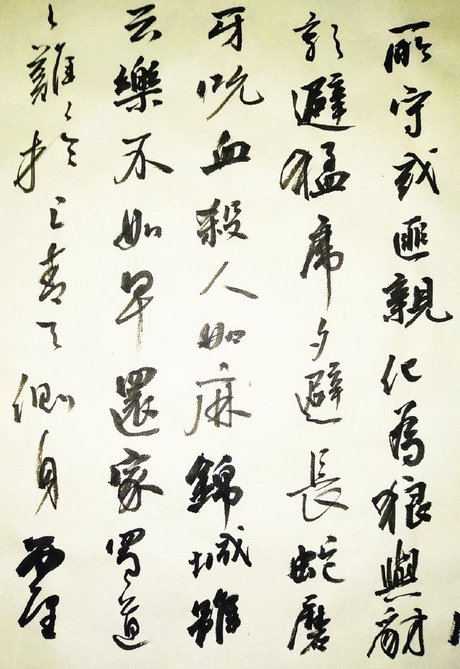 所守或匪親化為狼與豺
朝避猛虎夕避長蛇磨
牙吮血殺人如麻錦城雖
云樂不如早還家蜀道
之難々於上青天側身西望